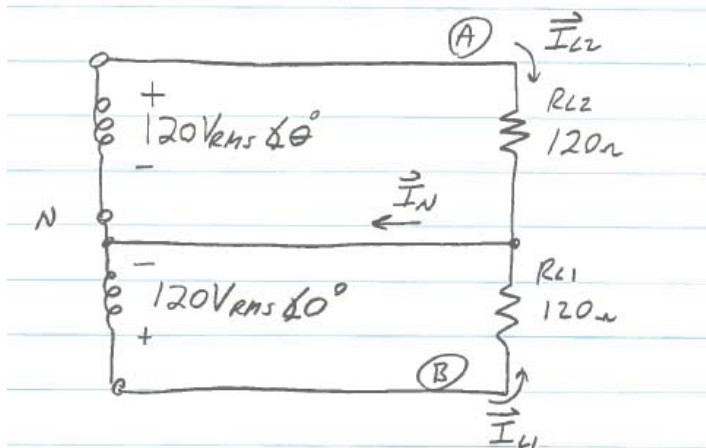 A
I⃗L2
+
120VRMS ∡θ°
-
RL2
120Ω
N
I⃗N
-
120VRMS ∡0°
+
RL1
120Ω
B
I⃗L1